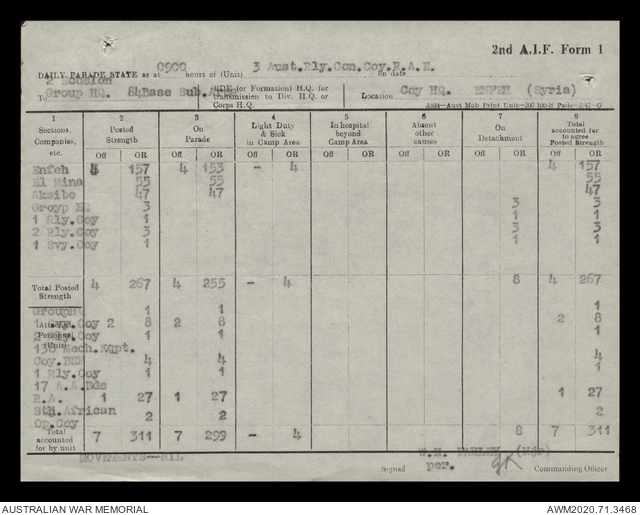 2nd A.I.F. Form 1
DAILY PARADE STATE as at 0900 hours of (Unit) 3 Aust.Rly.Con.Coy.R.A.E. on date
2 Echelon
To Group HQ. 84Base Sub. BDE (or Formation) H.Q. for transmission to Div. H.Q. or Corps H.Q. Location Coy HQ. ENFEH (Syria)
1 2 3 4 5 6 7 8
Sections, Companies, etc. Posted Strength On Parade Light Duty & Sick in Camp Area In hospital beyond Camp Area Absent other causes On Detachment Total accounted for to agree Posted Strength
Off OR Off OR Off OR Off OR Off OR Off OR Off OR
Enfeh 4 157 4 153 - 4 4 157
El Mina 55 55 55
Akeibe 47 47 47
Groyp HQ 3 3 3
1 Rly.Coy 1 1 1
2 Rly.Coy 3 3 3
1 Svy.Coy 1 1 1
Total Posted Strength 4 267 4 255 - 4 8 4 267
Attached Personnel (Unit)
Group 1 1 1
1 Coy 2 8 2 8 2 8
2 Coy 1 1 1
Mech.Eqpt.
Coy.DET 4 4 4
1 Rly.Coy 1 1 1
17 A.A.Bde
R.A. 1 27 1 27 1 27
Sth.African 2 2 2
Op.Coy
Total accounted for by unit 7 311 7 299 - 4 8 7 311
MOVEMENTS--NIL
(Mjr)
Signed per. Commanding Officer
AUSTRALIAN WAR MEMORIAL AWM2020.71.3468